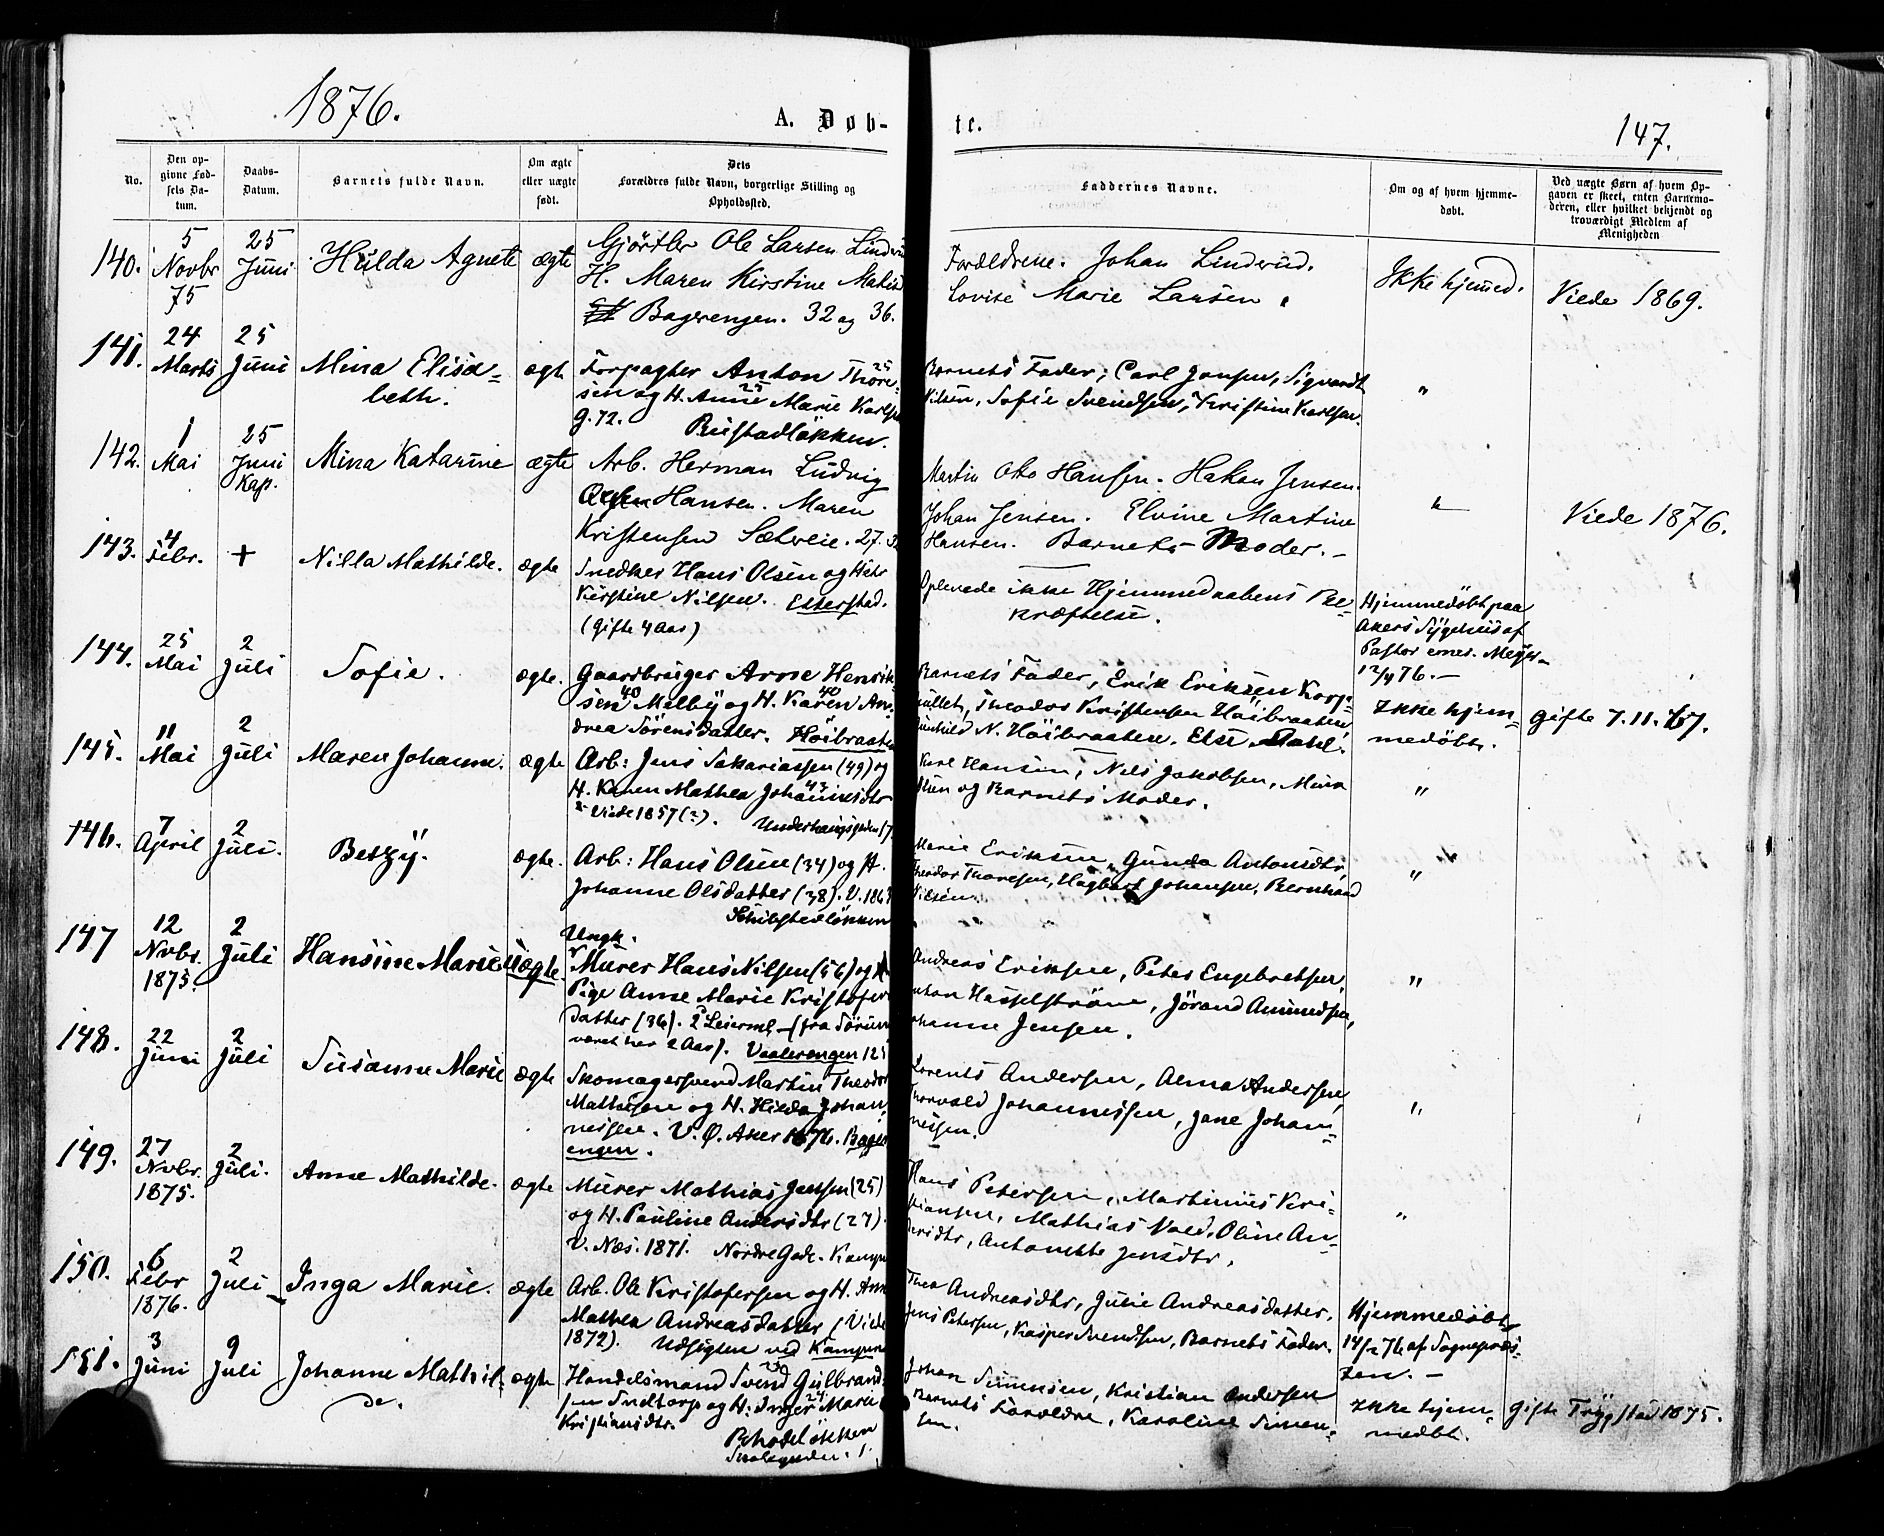 1876.
A. Døb-
te.
147.
No.
Den op-
givne Fød-
sels Da-
tum.
Daabs-
Datum.
Barnets fulde Navn.
Om ægte
eller uægte
født.
Dets
Forældres fulde Navn, borgerlige Stilling og
Opholdssted.
Faddernes Navne.
Om og af hvem hjemme-
døbt.
Ved uægte Børn af hvem Op-
gaven er skeet, enten Barnemo-
deren, eller hvilket bekjendt og
troværdigt Medlem af
Menigheden
140.
5
Novbr
75
25
Juni
Hilda Agnete
ægte
Gjørtler Ole Larsen
H. Maren Kirstine
Bagerengen. 32 og 36.
Forældrene. Johan Linderud.
Lovise Marie Larsen
Ikke hjemmed.
Viede 1869.
141.
24
Marts
25
Juni
Mina Elisa-
beth.
ægte
Forpagter Anton Thore-
25
sen og H. Anne Marie
25
G. 72. Rustadløkken.
Barnets Fader, Carl Jansen, Sigvardt
Nilsen, Sofie Svendsen, Kristine Karlsen.
"
142.
1
Mai
25
Juni
Kap.
Mina Katarine
ægte
Arb. Herman Ludvig
Hansen. Maren
Kristensen Sætreie. 27.
Martin Otto Hansen. Hakon Jensen.
Johan Jensen. Elvine Martine
Hansen. Barnets Moder. -
"
Viede 1876.
143.
4
Febr.
+
Nilla Mathilde.
ægte
Snedker Hans Olsen og Hstr
Kirstine Nilsen. Etterstad.
(Gifte 4 Aar)
Oplevede ikke Hjemmedaabens Be-
kræftelse.
Hjemmedøbt paa
Akers Sygehus af
Pastor emer. Meyer
12/4 76. -
144.
25
Mai
2
Juli
Sofie.
ægte.
Gaardbruger Arne Henrik-
40
sen Melby og H. Karen An-
40
drea Sørensdatter. Høibraaten
Barnets Fader, Erik Eriksen
Theodor Kristensen Høibraaten
N. Høibraaten. Else Dahl.
Ikke hjem-
medøbt.
Gifte 7.11.67.
145.
11
Mai
2
Juli
Maren Johanne.
ægte
Arb: Jens Sakariassen (49) og
H. Karen Mathea Johannesdtr
43
Viede 1857 (?).
Karl Hansen, Nils Jakobsen, Mina
og Barnets Moder.
"
146.
7
April
2
Juli.
Betzy.
ægte.
Arb: Hans Olsen (34) og H.
Johanne Olsdatter (38). V.
Marie Eriksen, Gunda Antonsdtr,
Theodor Thoresen, Hagbart Johansen, Bernhard
Nilsen.
"
147
12
Novbr.
1875.
2
Juli
Hansine Marie
Uægte.
Ungk.
Murer Hans Nilsen (56) og
Pige Anne Marie Kristofer
datter (36). 2 Leierml - (fra Sørum
været her 2 Aar). Vaalerengen 125
Andreas Eriksen, Peter Engebretsen,
Hasselstrøm, Jørand Amundsen,
Johanne Jensen.
"
148.
22
Juni
2
Juli
Susanne Marie
ægte
Skomagersvend Martin Theodor
Mathisen og H. Hilda Johan-
nessen. V. Ø. Aker 1876. Bager
engen.
Lorents Andersen, Alma Andersen,
Thorvald Johannessen, Jane Johan-
nessen.
"
149.
27
Novbr.
1875.
2
Juli.
Anne Mathilde.
ægte
Murer Mathias Jensen (25)
og H. Pauline Andersdtr (27).
V. Næs. 1871. Nordre Gade. Kampen
Hans Petersen, Martinius Kri-
stiansen, Mathias Vold, Oline An-
dersdtr, Antonette Jensdtr.
"
150.
6
Febr
1876.
2
Juli
Inga Marie.
ægte
Arb. Ole Kristofersen og H. Anne
Mathea Andreasdatter (Viede
1872). Udsigten ved Kampen
Thea Andreasdtr, Julie Andreasdatter,
Jens Petersen, Kasper Svendsen, Barnets Fader.
Hjemmedøbt
14/2 76 af Sognepræs-
ten. -
151.
3
Juni
9
Juli
Johanne Mathil-
de.
ægte
Handelsmand Svend Gulbrand-
sen Sndtorp og H. Inger Marie
24
Kristiansdtr.
Rhodeløkken
Johan Simensen, Kristian Andersen
Barnets Forældre, Karoline Simen-
sen.
Ikke hjem-
medbt.
Gifte Trygstad 1875.